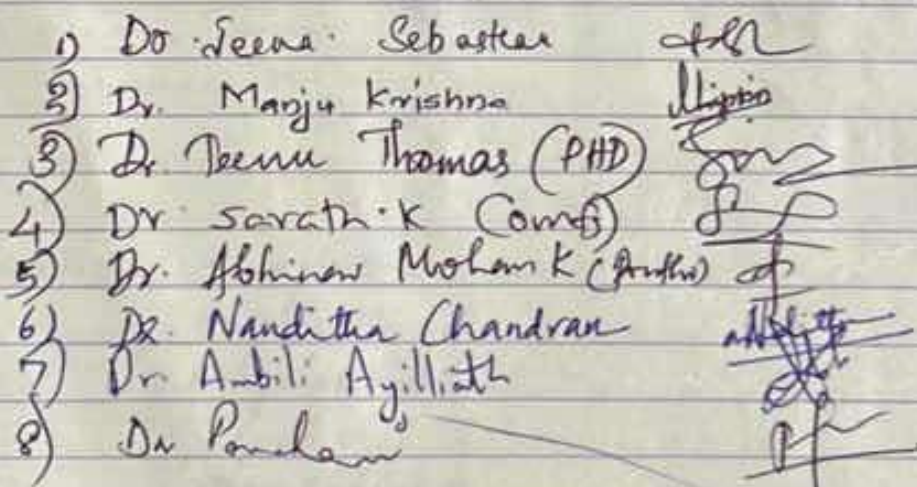 1) Dr. Seena Sebastian
2) Dr. Manju Krishna
3) Dr. Teenu Thomas (PHD)
4) Dr. Sarath.K (OMFS)
5) Dr. Abhinav Mohan K (Ortho)
6) Dr. Nanditha Chandran
7) Dr. Ambili Ayilliath
8) Dr